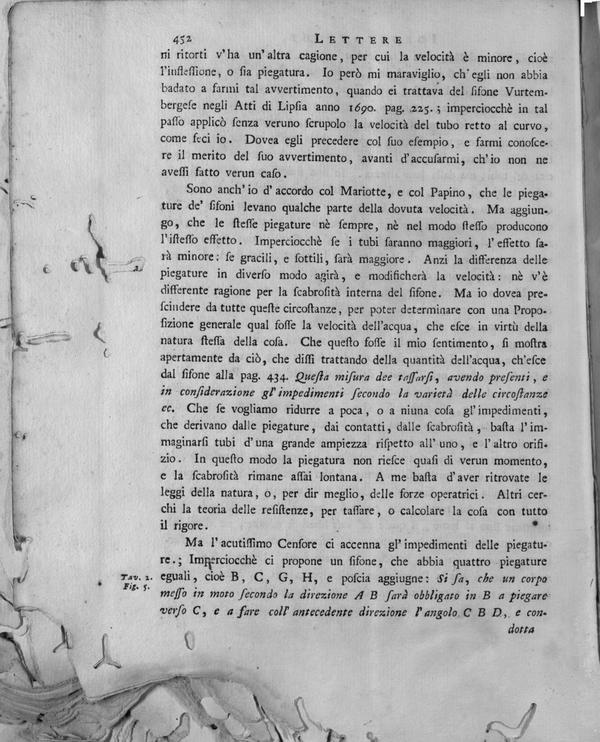 452 LETTERE
ni ritorti v'ha un'altra cagione, per cui la velocità è minore, cioè
l'inflessione, o sia piegatura. Io però mi maraviglio, ch'egli non abbia
badato a farmi tal avvertimento, quando ei trattava del sifone Vurtem-
bergese negli Atti di Lipsia anno 1690. pag. 225.; imperciocchè in tal
passo applicò senza veruno scrupolo la velocità del tubo retto al curvo,
come feci io. Dovea egli precedere col suo esempio, e farmi conosce-
re il merito del suo avvertimento, avanti d'accusarmi, ch'io non ne
avessi fatto verun caso.
Sono anch'io d'accordo col Mariotte, e col Papino, che le piega-
ture de' sifoni levano qualche parte della dovuta velocità. Ma aggiun-
go, che le stesse piegature nè sempre, nè nel modo stesso producono
l'istesso effetto. Imperciocchè se i tubi saranno maggiori, l'effetto sa-
rà minore: se gracili, e sottili, sarà maggiore. Anzi la differenza delle
piegature in diverso modo agirà, e modificherà la velocità: nè v'è
differente ragione per la scabrosità interna del sifone. Ma io dovea pre-
scindere da tutte queste circostanze, per poter determinare con una Propo-
sizione generale qual fosse la velocità dell'acqua, che esce in virtù della
natura stessa della cosa. Che questo fosse il mio sentimento, si mostra
apertamente da ciò, che dissi trattando della quantità dell'acqua, ch'esce
dal sifone alla pag. 434. Questa misura dee tassarsi, avendo presenti, e
in considerazione gl'impedimenti secondo la varietà delle circostanze
ec. Che se vogliamo ridurre a poca, o a niuna cosa gl'impedimenti,
che derivano dalle piegature, dai contatti, dalle scabrosità, basta l'im-
maginarsi tubi d'una grande ampiezza rispetto all'uno, e l'altro orifi-
zio. In questo modo la piegatura non riesce quasi di verun momento,
e la scabrosità rimane assai lontana. A me basta d'aver ritrovate le
leggi della natura, o, per dir meglio, delle forze operatrici. Altri cer-
chi la teoria delle resistenze, per tassare, o calcolare la cosa con tutto
il rigore.
Ma l'acutissimo Censore ci accenna gl'impedimenti delle piegatu-
re.; Imperciocchè ci propone un sifone, che abbia quattro piegature
Tav. 2. eguali, cioè B, C, G, H, e poscia aggiugne: Si sa, che un corpo
Fig. 5. messo in moto secondo la direzione A B sarà obbligato in B a piegare
verso C, e a fare coll'antecedente direzione l'angolo C B D, e con-
dotta